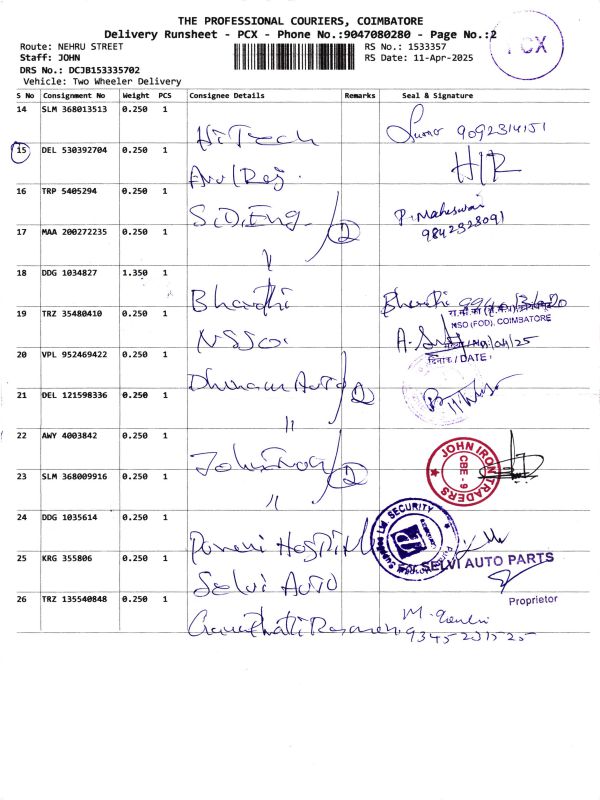 THE PROFESSIONAL COURIERS, COIMBATORE
Delivery Runsheet - PCX - Phone No.:9047080280 - Page No.:2
PCX
Route: NEHRU STREET
RS No.: 1533357
Staff: JOHN
RS Date: 11-Apr-2025
DRS No.: DCJB153335702
Vehicle: Two Wheeler Delivery
S No Consignment No Weight PCS Consignee Details Remarks Seal & Signature
14 SLM 368013513 0.250 1 HiTech 9092314151
15 DEL 530392704 0.250 1
16 TRP 5405294 0.250 1 S.D.Eng. 2 P. Maheswari
17 MAA 200272235 0.250 1 〃 9842328091
18 DDG 1034827 1.350 1 Bharathi Bharathi
19 TRZ 35480410 0.250 1 NSSO.
NSO (FOD), COIMBATORE
दिनांक / DATE:
20 VPL 952469422 0.250 1 Auto 2
21 DEL 121598336 0.250 1 〃
22 AWY 4003842 0.250 1 John Iron 2
JOHN IRON TRADERS
CBE - 9
23 SLM 368009916 0.250 1 〃
24 DDG 1035614 0.250 1 Hospital
SECURITY
25 KRG 355806 0.250 1 Selvi Auto
For SELVI AUTO PARTS
Proprietor
26 TRZ 135540848 0.250 1 9345231525